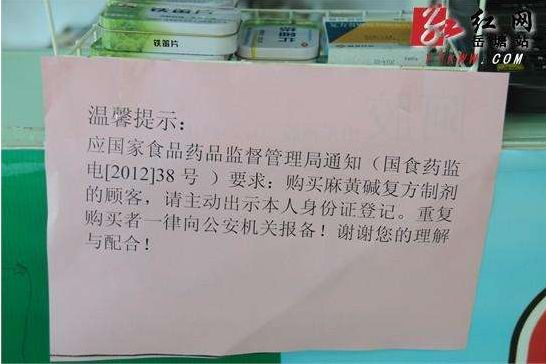 红网
岳塘站
铁笛片
温馨提示：
应国家食品药品监督管理局通知（国食药监
电[2012]38 号 ）要求：购买麻黄碱复方制剂
的顾客，请主动出示本人身份证登记。重复
购买者一律向公安机关报备！谢谢您的理解
与配合！